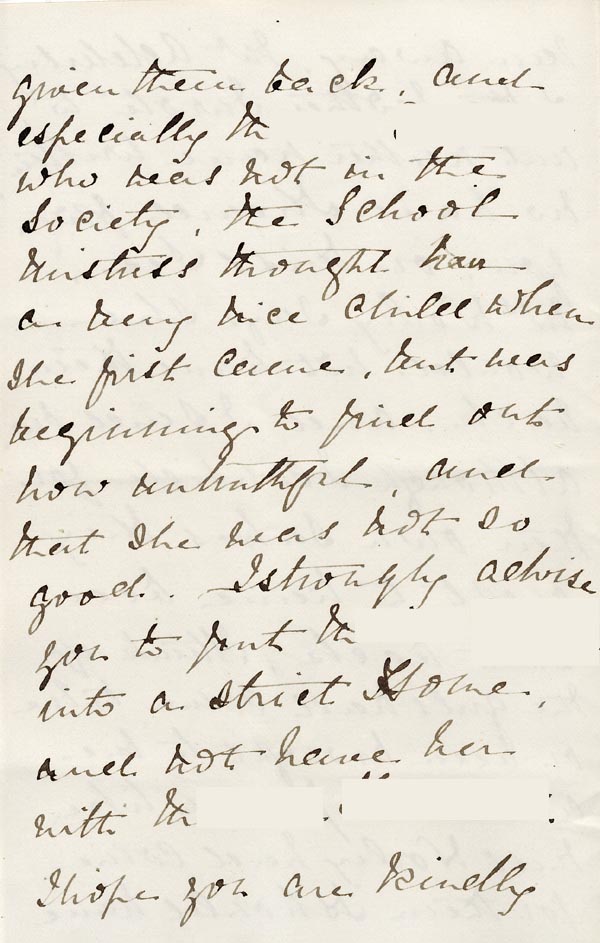 given them back, and
especially th
who was not in the
Society, the School
Mistress thought her
a very nice child when
she first came, but was
beginning to find out
how untruthful, and
that she was not so
good. I strongly advise
you to put th
into a strict Home,
and not have her
with th
I hope you are kindly